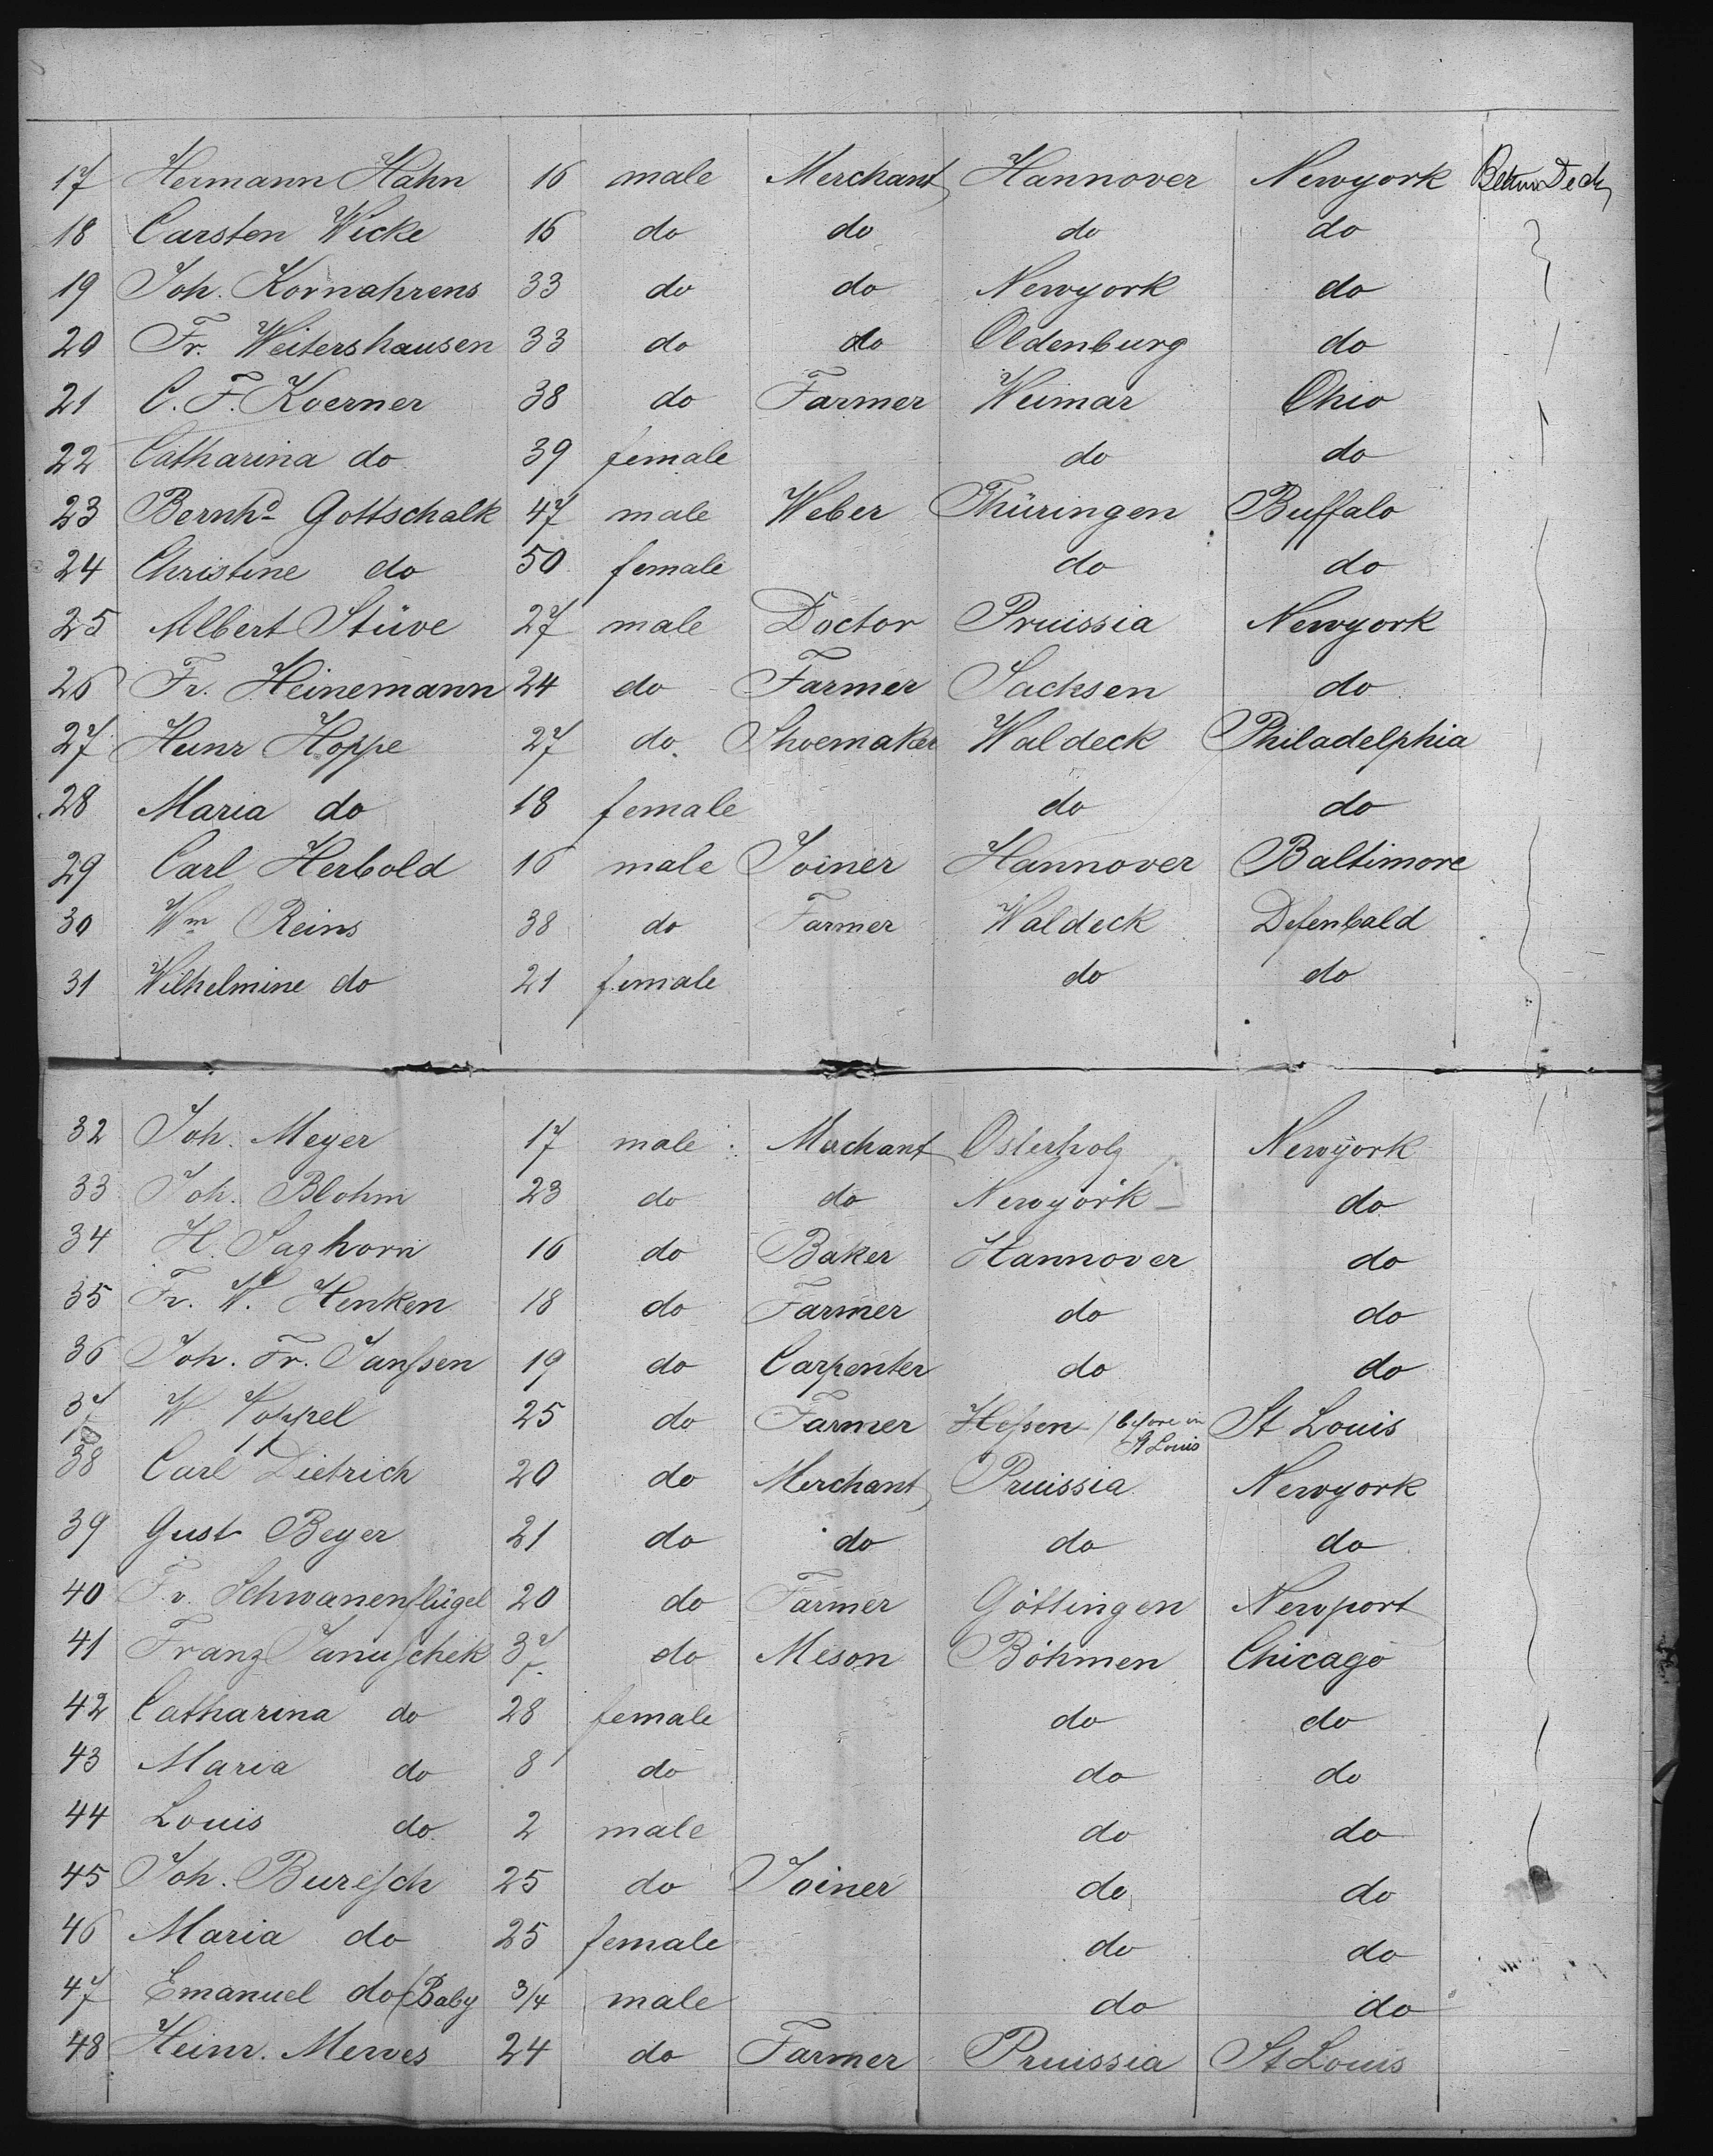 17 Hermann Hahn 16 male Merchant Hannover Newyork Between Deck
18 Carsten Wicke 16 do do do do
19 Joh. Kornahrens 33 do do Newyork do
20 Fr. Weitershausen 33 do do Oldenburg do
21 C. F. Koerner 38 do Farmer Weimar Ohio
22 Catharina do 39 female do do
23 Bernhd Gottschalk 47 male Weber Thüringen Buffalo
24 Christine do 50 female do do
25 Albert Stüve 27 male Doctor Pruissia Newyork
26 Fr. Heinemann 24 do Farmer Sacksen do
27 Heinr Hoppe 27 do Shoemaker Waldeck Philadelphia
28 Maria do 18 female do do
29 Carl Herbold 16 male Joiner Hannover Baltimore
30 Wm Reins 38 do Farmer Waldeck Defenbald
31 Wilhelmine do 21 female do do
32 Joh. Meyer 17 male Merchant Osterholz Newyork
33 Joh. Blohm 23 do do Newyork do
34 H. Saghorn 16 do Baker Hannover do
35 Fr. W. Henken 18 do Farmer do do
36 Joh. Fr. Janſsen 19 do Carpenter do do
37 W. Voppel 25 do Farmer Heſsen / before in St Louis St Louis
38 Carl Dietrich 20 do Merchant Pruissia Newyork
39 Gust Beyer 21 do do do do
40 Fr. Schwanenflügel 20 do Farmer Göttingen Newport
41 Franz Januſchek 37 do Meson Böhmen Chicago
42 Catharina do 28 female do do
43 Maria do 8 do do do
44 Louis do 2 male do do
45 Joh. Bureſch 25 do Joiner do do
46 Maria do 25 female do do
47 Emanuel do (Baby 3/4 male do do
48 Heinr. Merves 24 do Farmer Pruissia St Louis